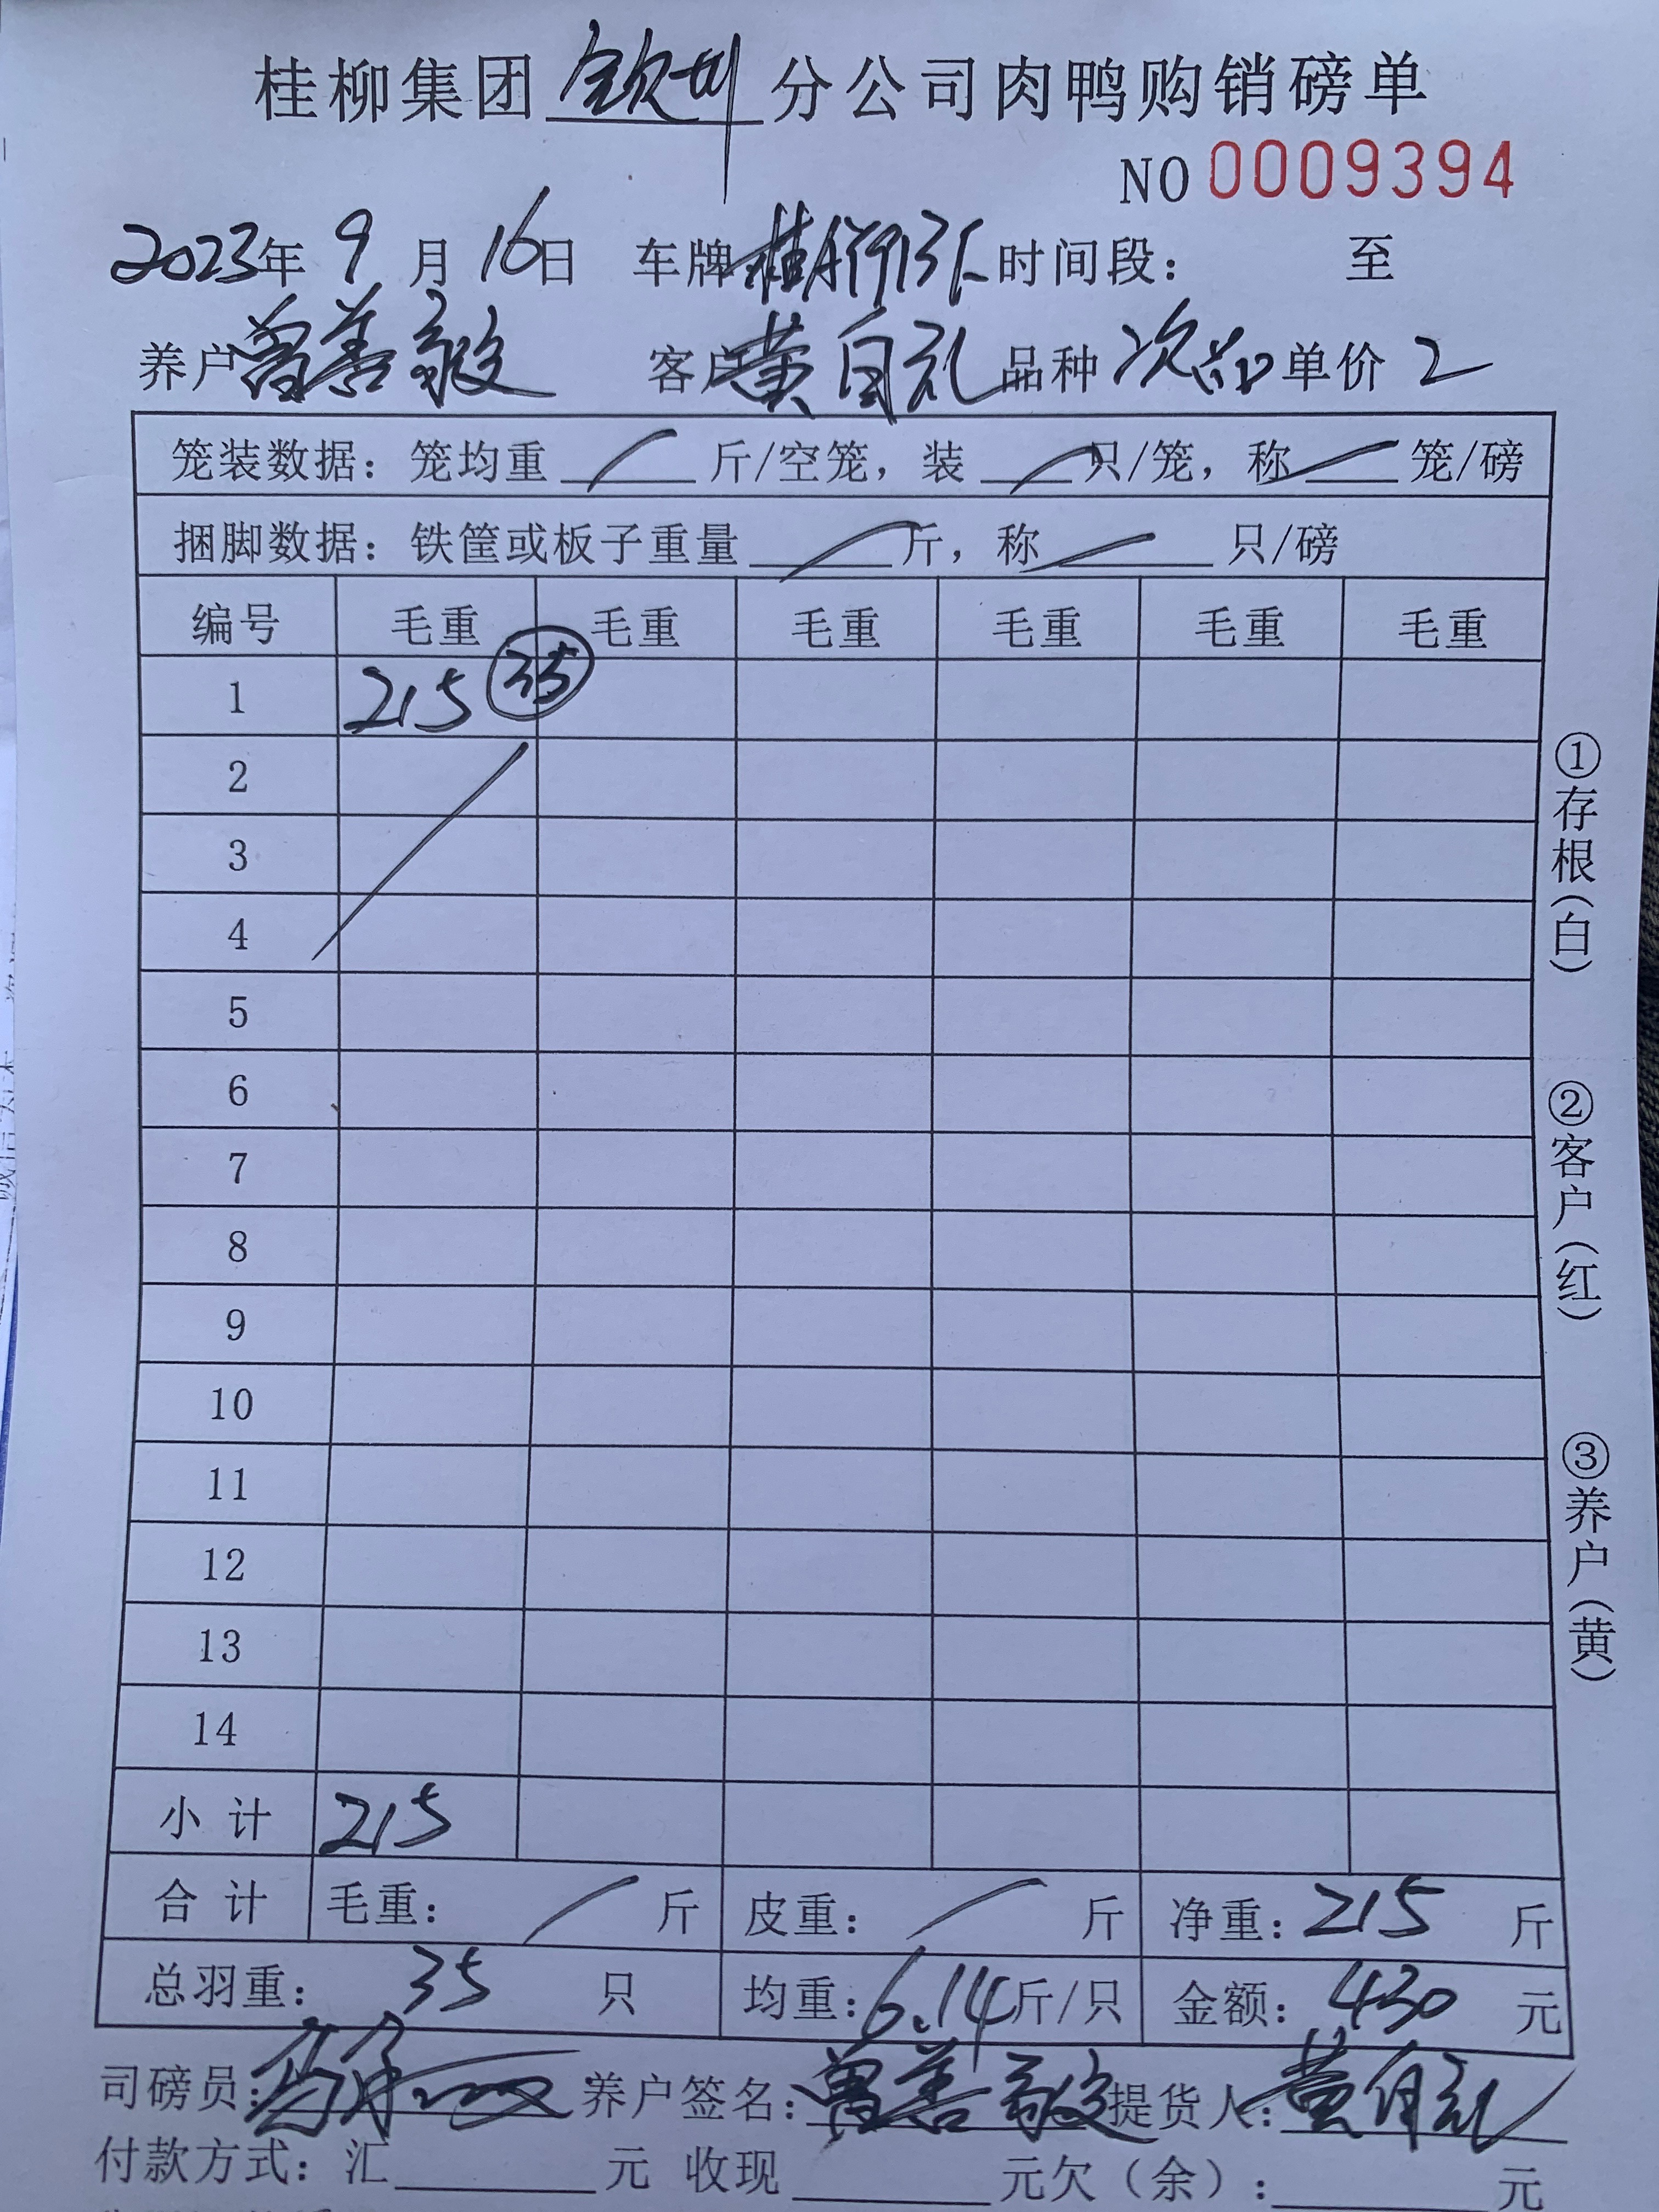 桂柳集团 钦州 分公司肉鸭购销磅单
NO 0009394
2023年 9 月 16日 车牌 时间段: 至
养户 曾善敏 客户 黄自礼 品种 次品 单价 2
笼装数据: 笼均重 / 斤/空笼, 装 / 只/笼, 称 / 笼/磅
捆脚数据: 铁筐或板子重量 / 斤, 称 / 只/磅
编号 毛重 毛重 毛重 毛重 毛重 毛重
1 215 35
2
3
4
5
6
7
8
9
10
11
12
13
14
小计 215
合计 毛重: / 斤 皮重: / 斤 净重: 215 斤
总羽重: 35 只 均重: 6.14 斤/只 金额: 430 元
司磅员: 养户签名: 曾善敏 提货人: 黄自礼
付款方式: 汇 元 收现 元欠(余): 元
①存根(白)
②客户(红)
③养户(黄)